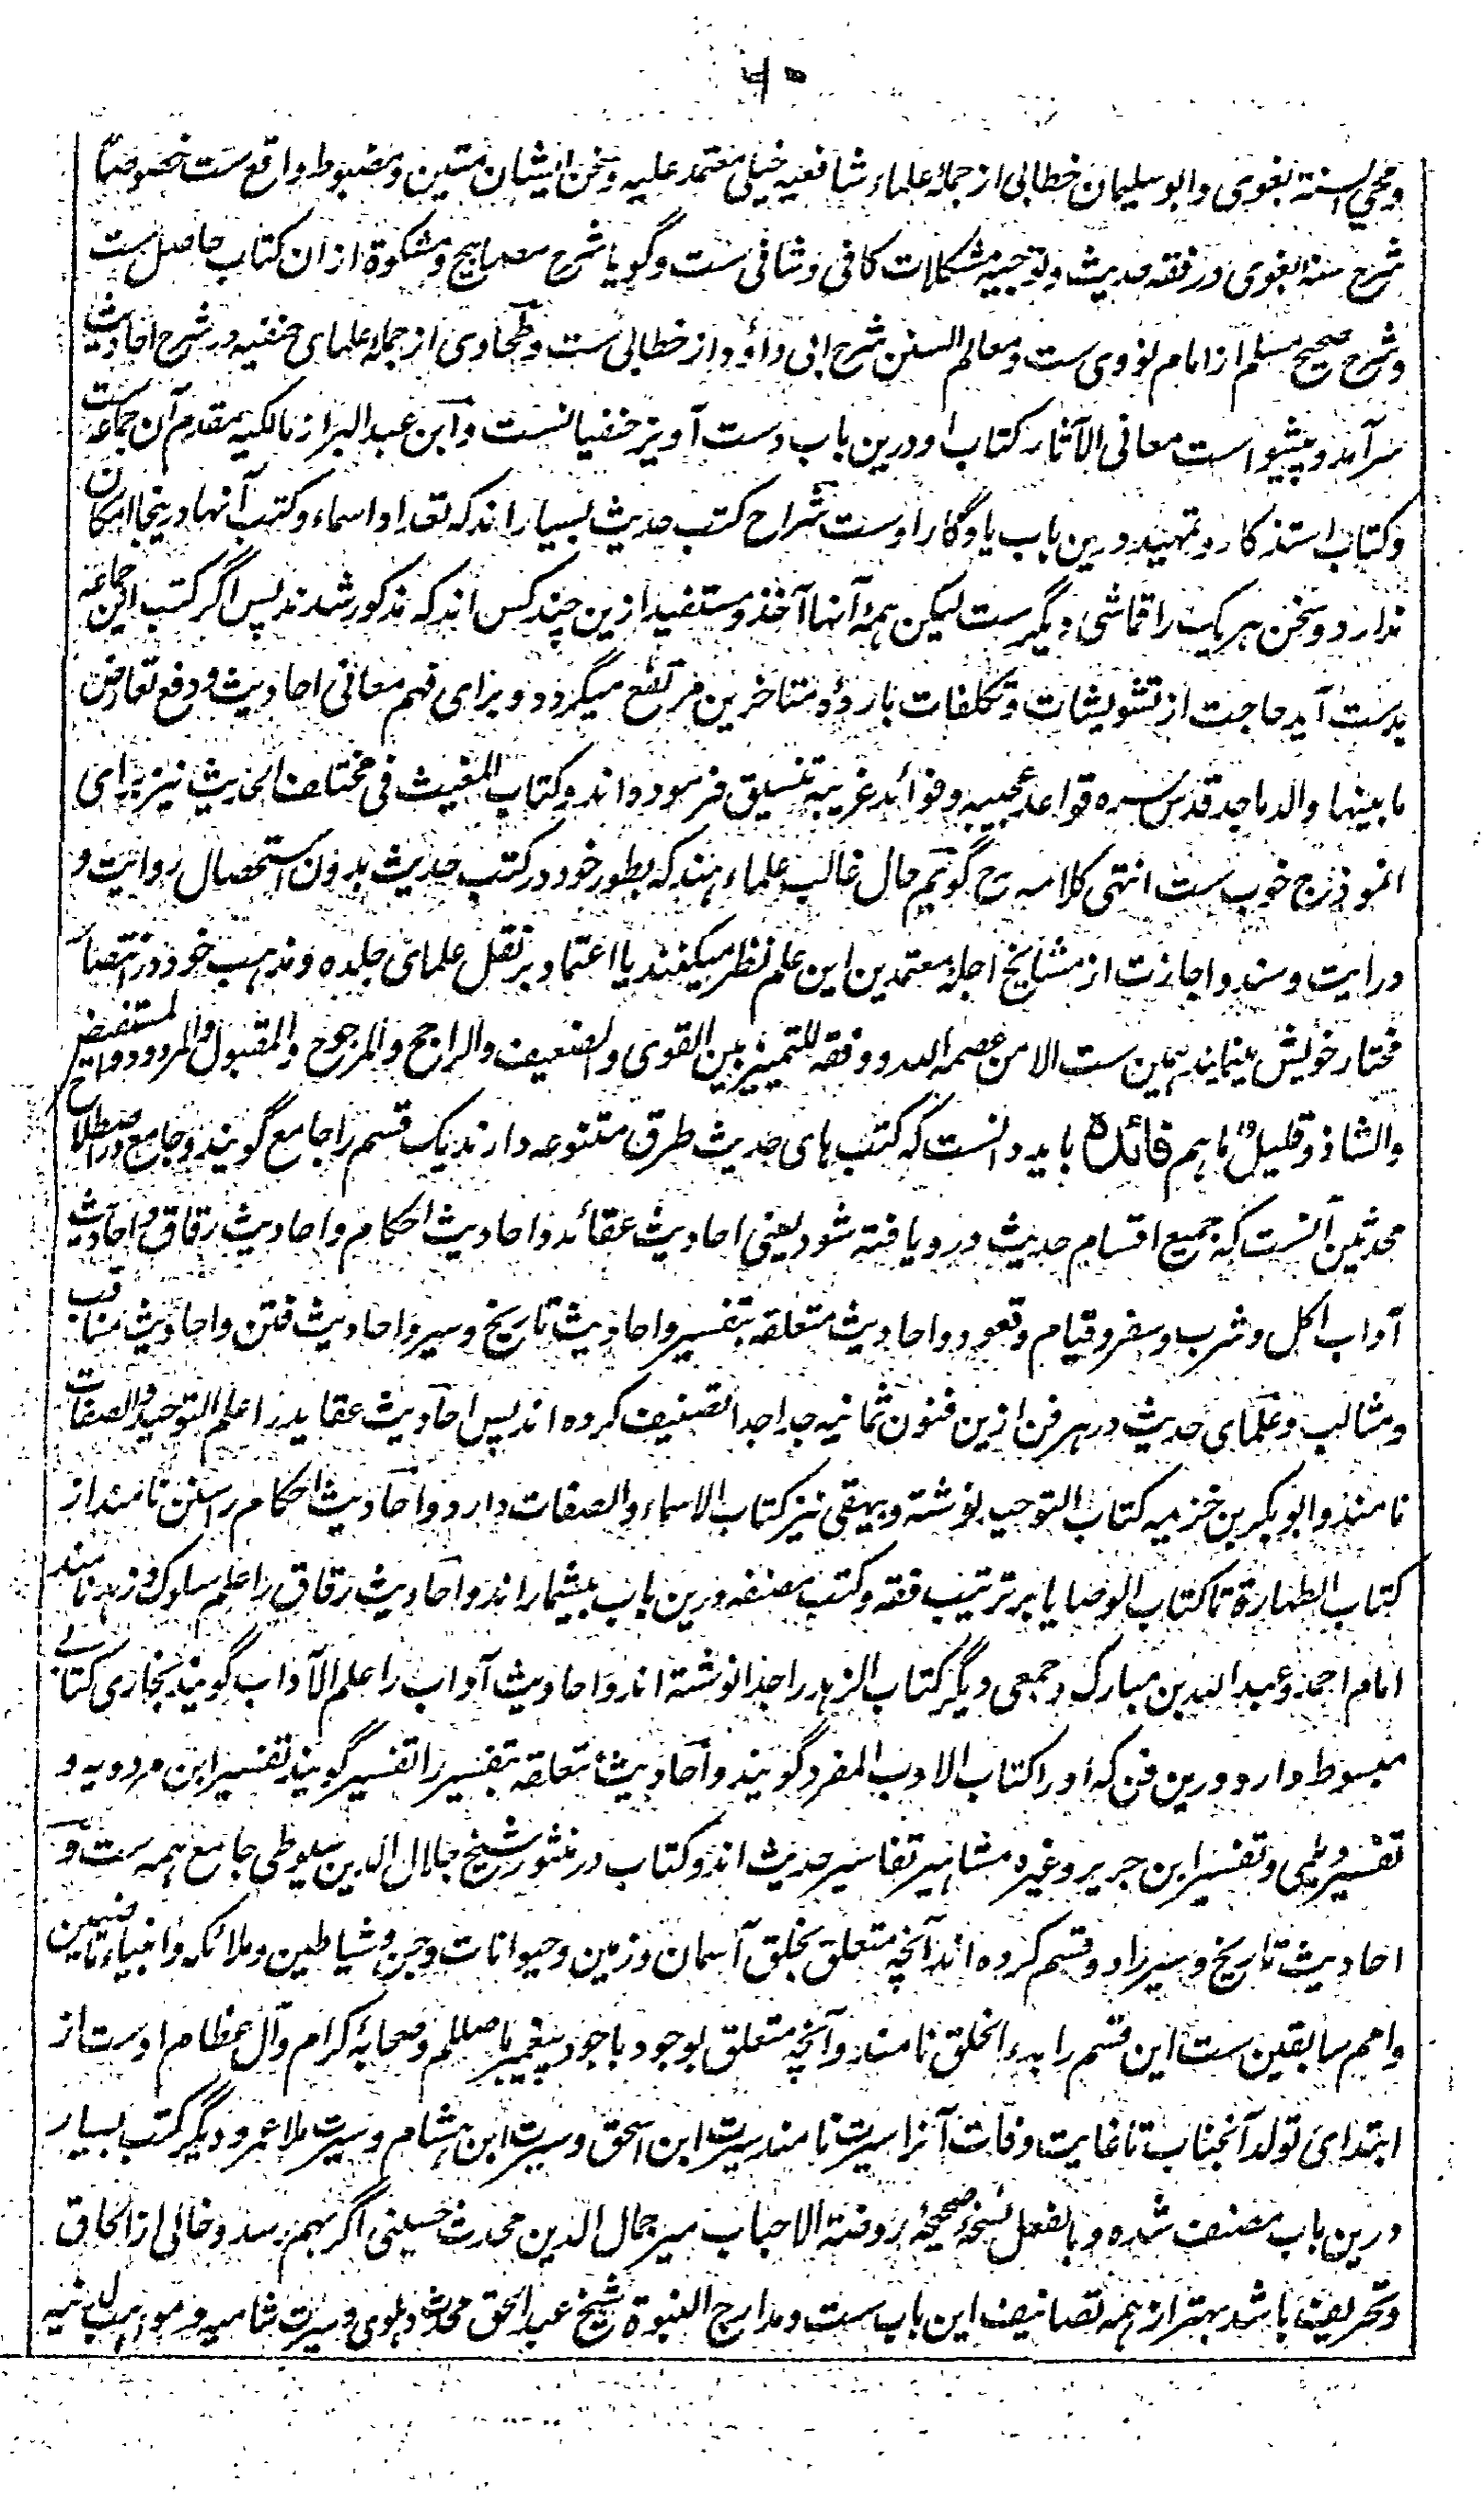 ۶۰
ومحي السنة بغوی وابو سلیمان خطابی از جملهٔ علماء شافعیه خیلی معتمد علیه وسخن ایشان متین ومضبوط واقع ست خصوصاً
شرح سنة بغوی در فقه حدیث وتوجیه مشکلات کافی وشافی ست وگویا شرح مصابیح ومشکوة ازان کتاب حاصل ست
وشرح صحیح مسلم از امام نووی ست ومعالم السنن شرح ابی داؤد از خطابی ست وطحاوی از جملهٔ علمای حنفیه در شرح احادیث
سرآمد وپیشواست معانی الآثار کتاب او درین باب دست آویز حنفیانست وابن عبد البر از مالکیه مقدم آن جماعه ست
وکتاب استذکار وتمهید درین باب یادگار اوست شراح کتب حدیث بسیار اند که تعداد اسماء وکتب آنها درینجا امکان
ندارد وسخن هر یک را قماشی دیگر ست لیکن همهٔ آنها آخذ ومستفید ازین چند کس اند که مذکور شدند پس اگر کتب این جماعه
بدست آید حاجت از تشویشات وتکلفات باردهٔ متاخرین مرتفع میگردد وبرای فهم معانی احادیث ودفع تعارض
مابینها والد ماجد قدس سره قواعد عجیبه وفوائد غریبه تنسیق فرموده اند وکتاب المغیث فی مختلف الحدیث نیز برای
انموذج خوب ست انتهی کلامه رح گویم حال غالب علماء هند که بطور خود در کتب حدیث بدون استحصال روایت و
درایت وسند واجازت از مشایخ اجلهٔ معتمدین این علم نظر میکنند یا اعتماد بر نقل علمای جلده ومذهب خود در انتصار
مختار خویش مینمایند همین ست الا من عصمه الله ووفقه للتمییز بین القوی والضعیف والراجح والمرجوح والمقبول والمردود والمستفیض
والشاذ وقلیل ما هم فائدة باید دانست که کتب های حدیث طرق متنوعه دارند یک قسم را جامع گویند وجامع در اصطلاح
محدثین آنست که جمیع اقسام حدیث درو یافته شود یعنی احادیث عقائد واحادیث احکام واحادیث رقاق واحادیث
آداب اکل وشرب وسفر وقیام وقعود واحادیث متعلقه بتفسیر واحادیث تاریخ وسیر واحادیث فتن واحادیث مناقب
ومثالب وعلمای حدیث در هر فن ازین فنون ثمانیه جدا جدا تصنیف کرده اند پس احادیث عقاید را علم التوحید والصفات
نامند وابو بکر بن خزیمه کتاب التوحید نوشته وبیهقی نیز کتاب الاسماء والصفات دارد واحادیث احکام را سنن نامند از
کتاب الطهارة تا کتاب الوصایا بر ترتیب فقه وکتب مصنفه درین باب بیشمار اند واحادیث رقاق را علم سلوک وزهد نامند
امام احمد وعبد الله بن مبارک وجمعی دیگر کتاب الزهد را جدا نوشته اند واحادیث آداب را علم الآداب گویند بخاری کتابی
مبسوط دارد درین فن که او را کتاب الادب المفرد گویند واحادیث متعلقه بتفسیر را تفسیر گویند تفسیر ابن مردویه و
تفسیر دیلمی وتفسیر ابن جریر وغیره مشاهیر تفاسیر حدیث اند وکتاب در منثور شیخ جلال الدین سیوطی جامع همه ست و
احادیث تاریخ وسیر را دو قسم کرده اند آنچه متعلق بخلق آسمان وزمین وحیوانات وجن وشیاطین وملائکه وانبیاء ماضیین
وامم سابقین ست این قسم را بدء الخلق نامند وآنچه متعلق بوجود باجود پیغمبر ما صللم وصحابهٔ کرام وآل عظام اوست از
ابتدای تولد آنجناب تا غایت وفات آنرا سیرت نامند سیرت ابن اسحق وسیرت ابن هشام وسیرت ملا عمر ودیگر کتب بسیار
درین باب مصنف شده وبالفعل نسخهٔ صحیحهٔ روضة الاحباب میر جمال الدین محدث حسینی اگر بهم رسد وخالی از الحاق
وتحریف باشد بهتر از همه تصانیف این باب ست ومدارج النبوة شیخ عبد الحق محدث دهلوی وسیرت شامیه ومواهب لدنیه